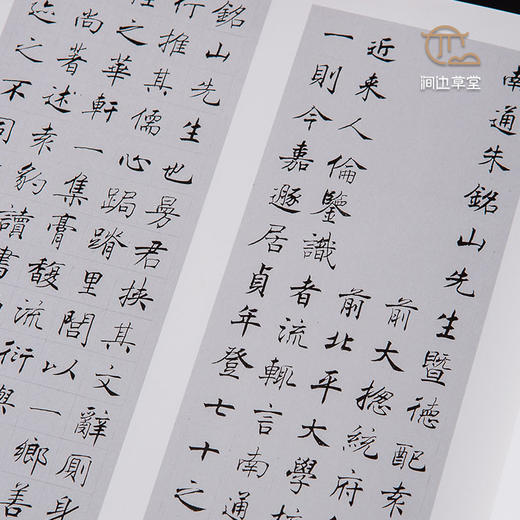 澗边草堂
南通朱銘山先生暨德配索
前大揔統府
前北平大學校
近来人倫鑒識者流輒言南通
一則今嘉遯居貞年登七十之
銘山先生也曩君挾其文辭厠身
行推其儒心跼蹐里閭以一鄉善
之華軒一集膏馥流衍與
尚著述袁豹讀書
之不同